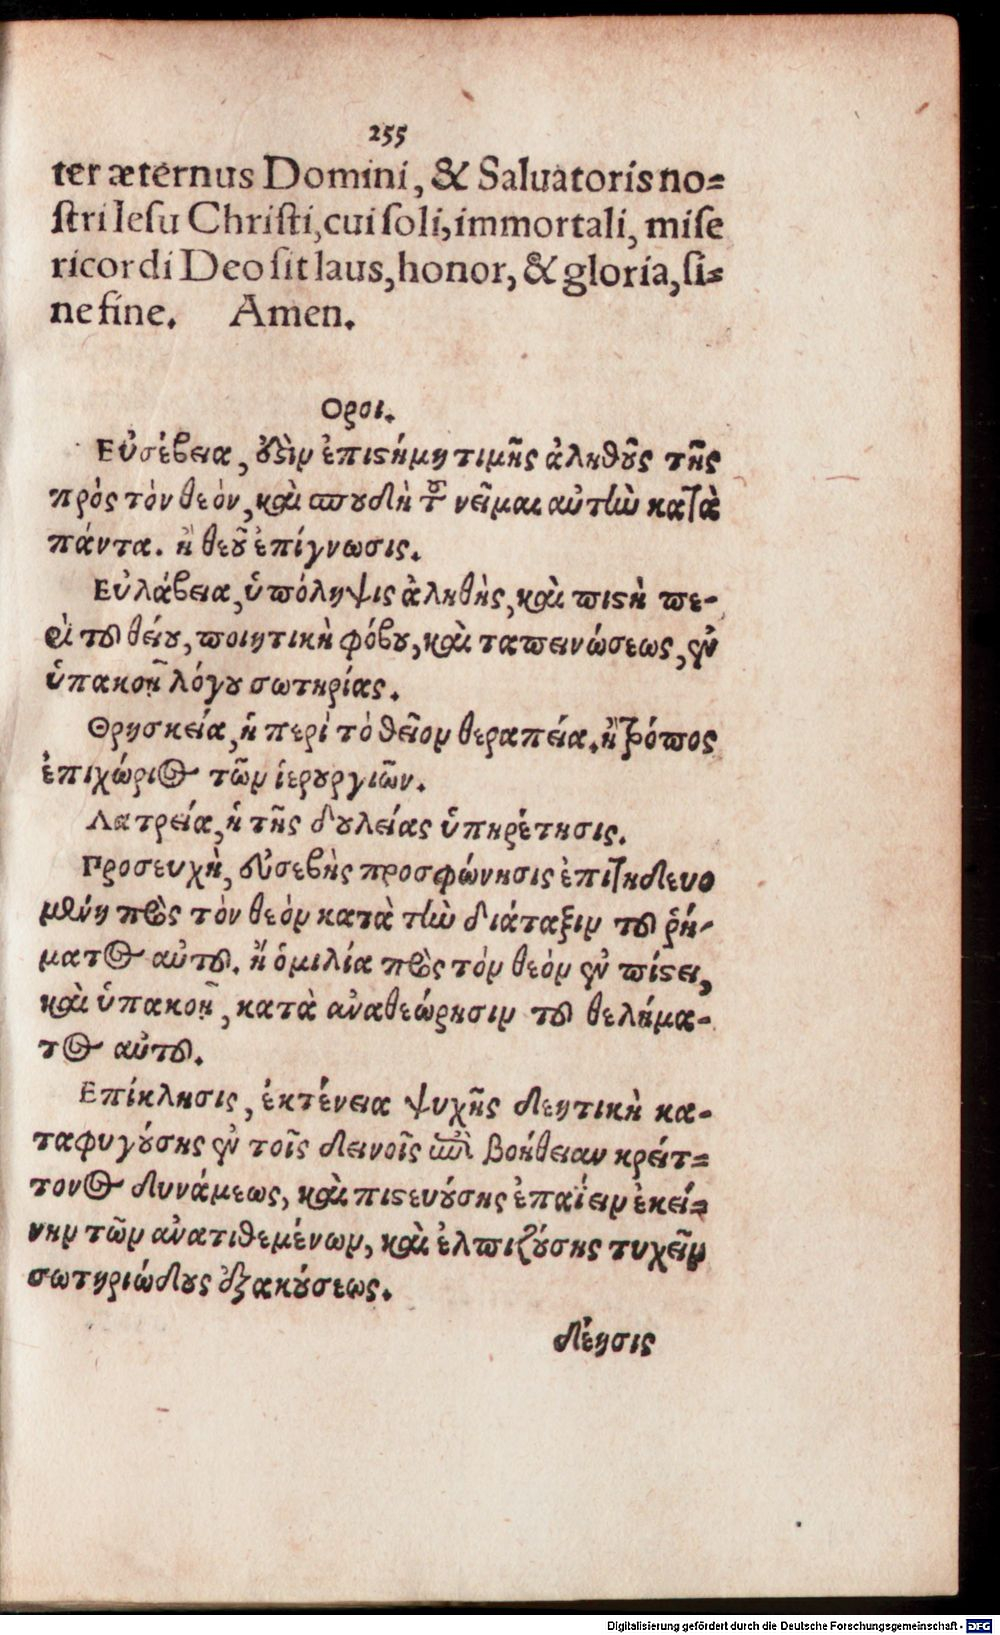 255
ter æternus Domini, & Saluatoris no=
stri Iesu Christi, cui soli, immortali, mise
ricordi Deo sit laus, honor, & gloria, si=
ne fine. Amen.
Οροι.
Εὐσέβεια, ἕξιν ἐπιστήμη τιμῆς ἀληθοῦς τῆς
πρὸς τὸν θεόν, καὶ σπουδὴ τοῦ νεῖμαι αὐτὴν κατὰ
πάντα. ἢ θεοῦ ἐπίγνωσις.
Εὐλάβεια, ὑπόληψις ἀληθὴς, καὶ πιστὴ πε-
ρὶ τοῦ θείου, ποιητικὴ φόβου, καὶ ταπεινώσεως, ἐν
ὑπακοῇ λόγου σωτηρίας.
Θρησκεία, ἡ περὶ τὸ θεῖον θεραπεία. ἢ τρόπος
ἐπιχώριος τῶν ἱερουργιῶν.
Λατρεία, ἡ τῆς δουλείας ὑπηρέτησις.
Προσευχὴ, εὐσεβὴς προσφώνησις ἐπιτηδευο
μένη πρὸς τὸν θεὸν κατὰ τὴν διάταξιν τοῦ ῥή-
ματος αὐτοῦ. ἢ ὁμιλία πρὸς τὸν θεὸν ἐν πίστει,
καὶ ὑπακοῇ, κατὰ ἀναθεώρησιν τοῦ θελήμα-
τος αὐτοῦ.
Επίκλησις, ἐκτένεια ψυχῆς δεητικὴ κα-
ταφυγούσης ἐν τοῖς δεινοῖς ἐπὶ βοήθειαν κρείτ=
τονος δυνάμεως, καὶ πιστευούσης ἐπαΐειν ἐκεί=
νην τῶν ἀνατιθεμένων, καὶ ἐλπιζούσης τυχεῖν
σωτηριώδους ἐξακούσεως.
δέησις
Digitalisierung gefördert durch die Deutsche Forschungsgemeinschaft - DFG